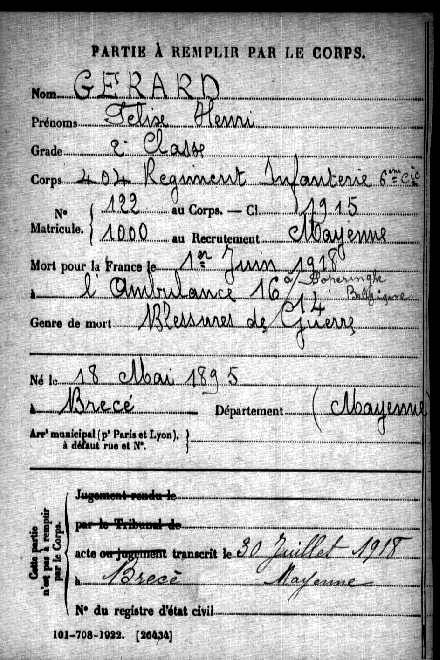 PARTIE À REMPLIR PAR LE CORPS.
Nom GÉRARD
Prénoms Félix Henri
Grade 2e Classe
Corps 404 Regiment Infanterie 6eme Cie
N° Matricule. { 122 au Corps. — Cl. 1915
1000 au Recrutement Mayenne
Mort pour la France le 1er Juin 1918
à l'Ambulance 16/14 à Belgique
Genre de mort Blessures de Guerre
Né le 18 Mai 1895
à Brecé Département (Mayenne)
Arrt municipal (pr Paris et Lyon),
à défaut rue et N°.
Cette partie n'est pas à remplir par le Corps.
Jugement rendu le
par le Tribunal de
acte ou jugement transcrit le 30 Juillet 1918
à Brecé Mayenne
N° du registre d'état civil
101-708-1922. [26434]